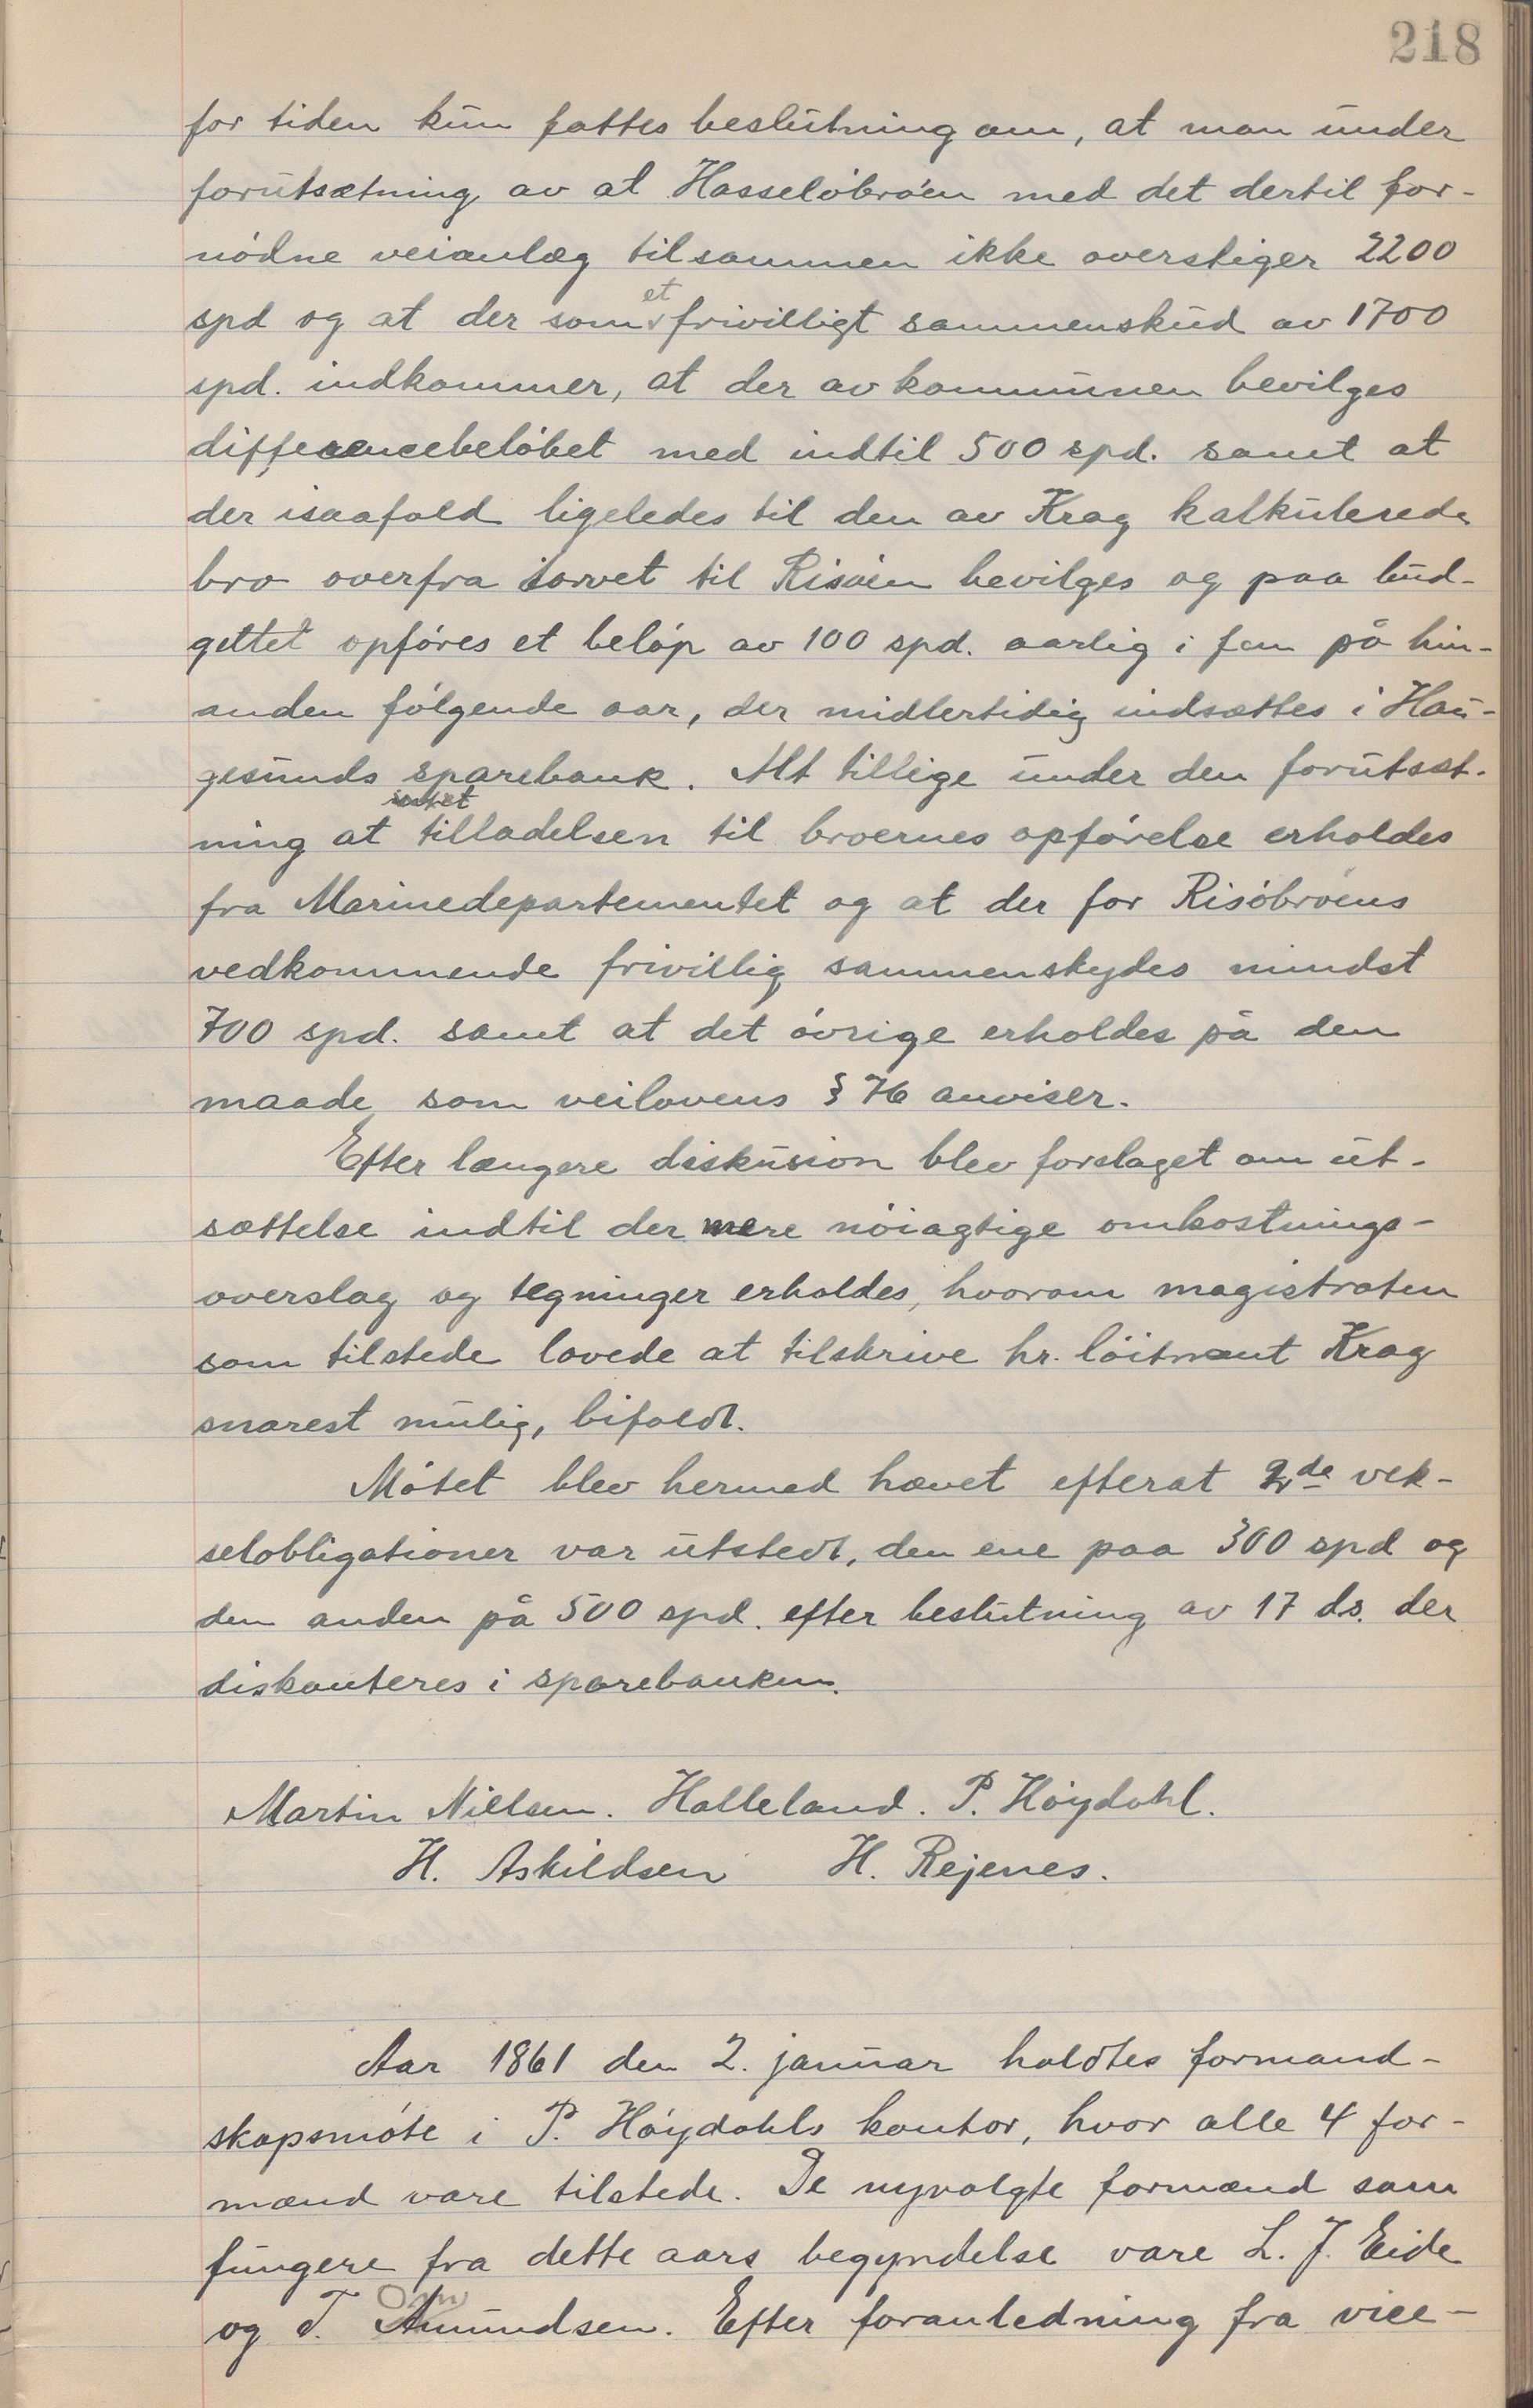 218
for tiden kun fattes beslutning om, at man under
forutsætning av at Hasseløbrøen med det dertil for-
nødne veianlæg tilsammen ikke overstiger 2200
spd og at der som et frivilligt sammenskud av 1700
spd. indkommer, at der av kommunen bevilges
differencebeløbet med indtil 500 spd. samt at
der isaafald ligeledes til den av Krag kalkulerede
bro overfra torvet til Risøen bevilges og paa bud-
gettet opføres et beløp av 100 spd. aarlig i fem på hin-
anden følgende aar, der midlertidig indsættes i Hau-
gesunds sparebank. Alt tillige under den forutsæt-
ning at tilladelsen til broernes opførelse erholdes
fra Marinedepartementet og at der for Risøbroens
vedkommende frivillig sammenskydes mindst
700 spd. samt at det øvrige erholdes på den
maade som veilovens § 76 anviser.
Efter længere diskusion blev forslaget om ut-
sættelse indtil der mere nøiagtige omkostnings-
overslag og tegninger erholdes, hvorom magistraten
som tilstede lovede at tilskrive hr. løitnant Krag
snarest mulig, bifaldt.
Møtet blev hermed hævet efterat 2de vek-
selobligationer var utstedt, den ene paa 300 spd og
den anden på 500 spd. efter beslutning av 17 ds. der
diskonteres i sparebanken.
Martin Nielsen. Halleland. P. Høydahl.
H. Askildsen H. Rejenes.
Aar 1861 den 2. januar holdtes formand-
skapsmøte i P. Høydahls kontor, hvor alle 4 for-
mænd vare tilstede. De nyvalgte formænd som
fungere fra dette aars begyndelse vare L. J. Eide
og T. Amundsen. Efter foranledning fra vice-